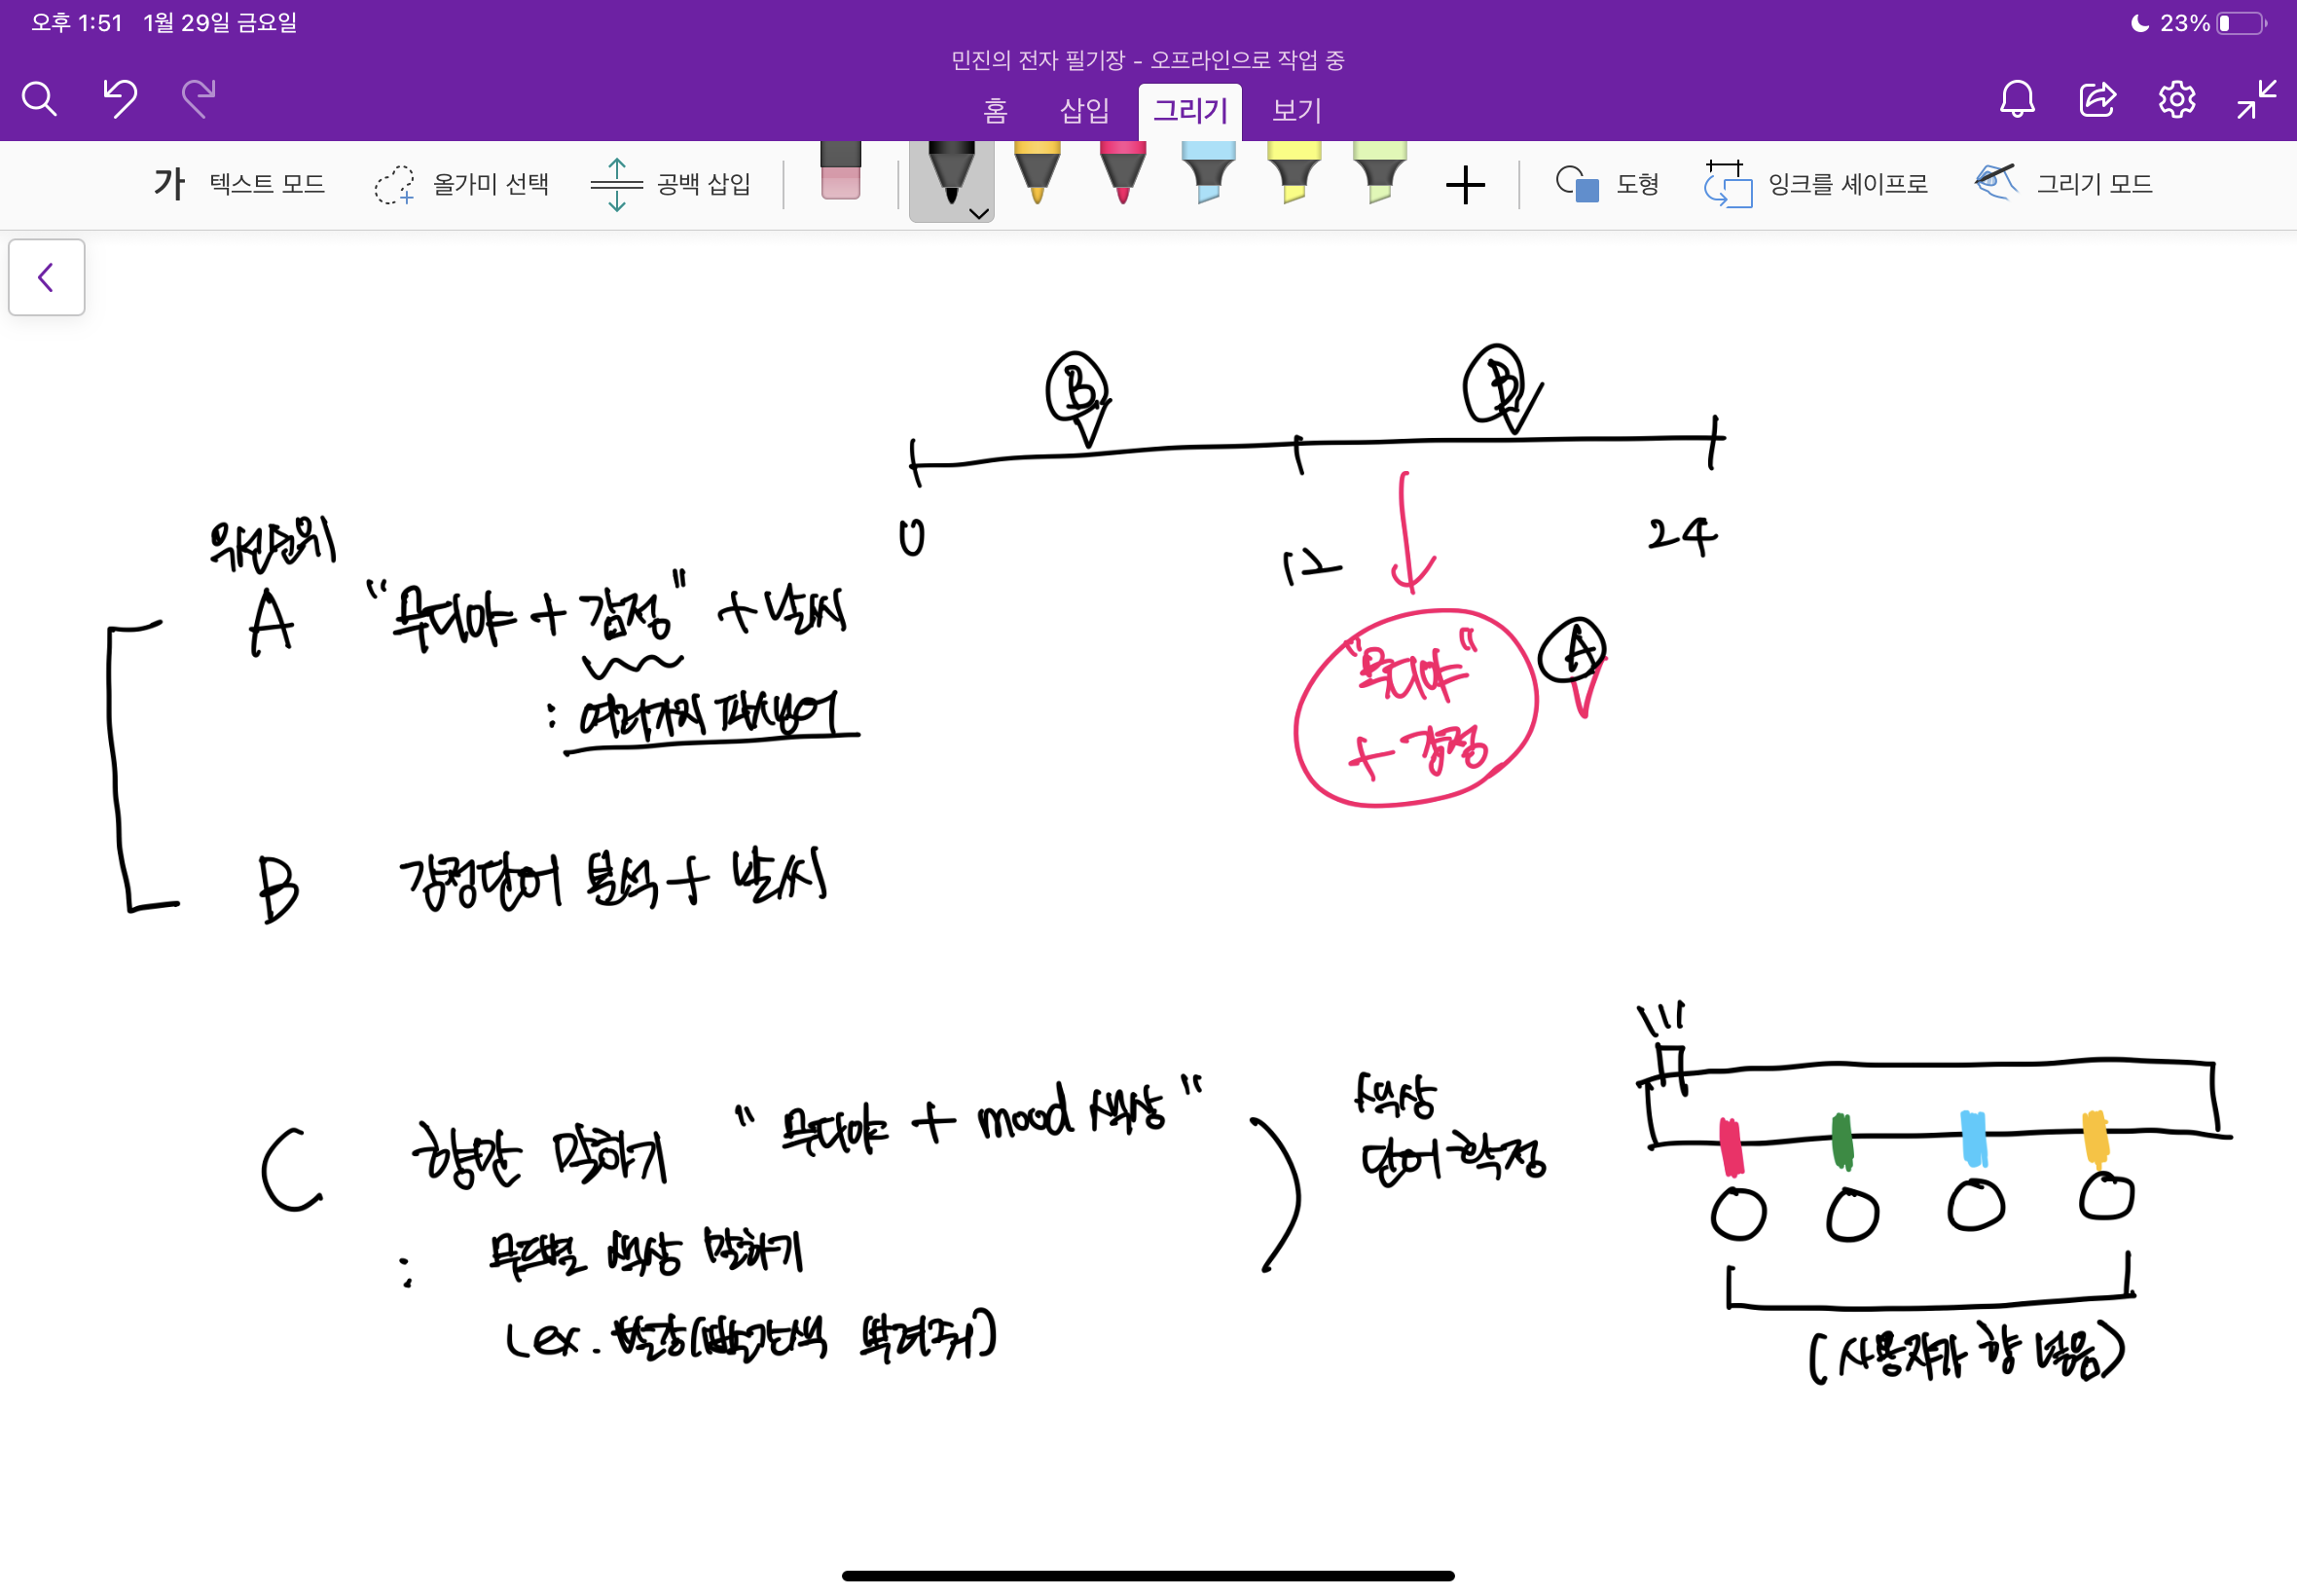 오후 1:51 1월 29일 금요일
23%
민진의 전자 필기장 - 오프라인으로 작업 중
홈 삽입 그리기 보기
가 텍스트 모드 올가미 선택 공백 삽입 도형 잉크를 셰이프로 그리기 모드
B B
0 12 24
우선순위
A "무디야 + 감정" + 날씨
: 여섯가지 파생어
"무디야"
+ 감정
A
B 감정단어 분석 + 날씨
C 향만 말하기 "무디야 + mood 색상"
: 무드별 색상 말하기
(ex. 빨강(빨간색 틀어줘)
색상
단어 학습
0 0 0 0
(사용자가 향 넣음)